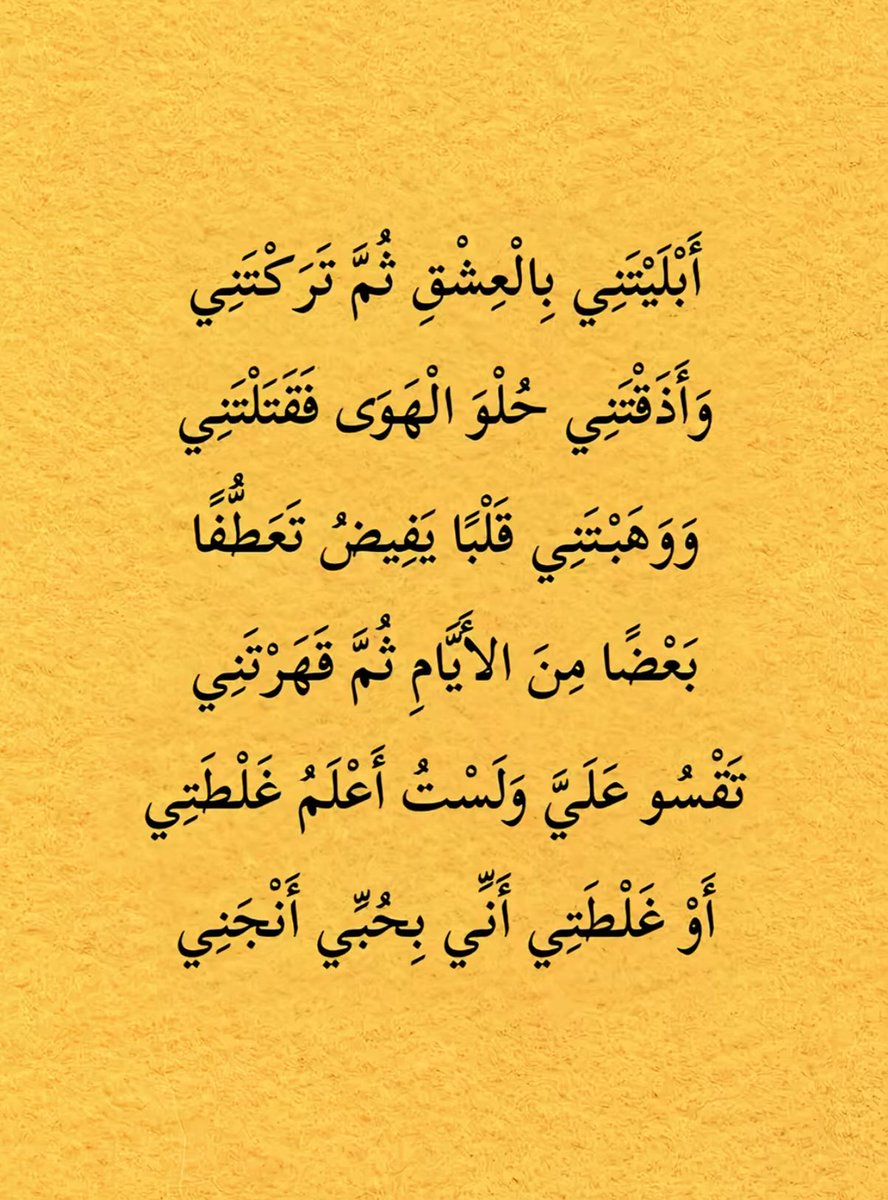 أَبْلَيْتَنِي بِالْعِشْقِ ثُمَّ تَرَكْتَنِي
وَأَذَقْتَنِي حُلْوَ الْهَوَى فَقَتَلْتَنِي
وَوَهَبْتَنِي قَلْبًا يَفِيضُ تَعَطُّفًا
بَعْضًا مِنَ الأَيَّامِ ثُمَّ قَهَرْتَنِي
تَقْسُو عَلَيَّ وَلَسْتُ أَعْلَمُ غَلْطَتِي
أَوْ غَلْطَتِي أَنِّي بِحُبِّي أَنْجَنِي